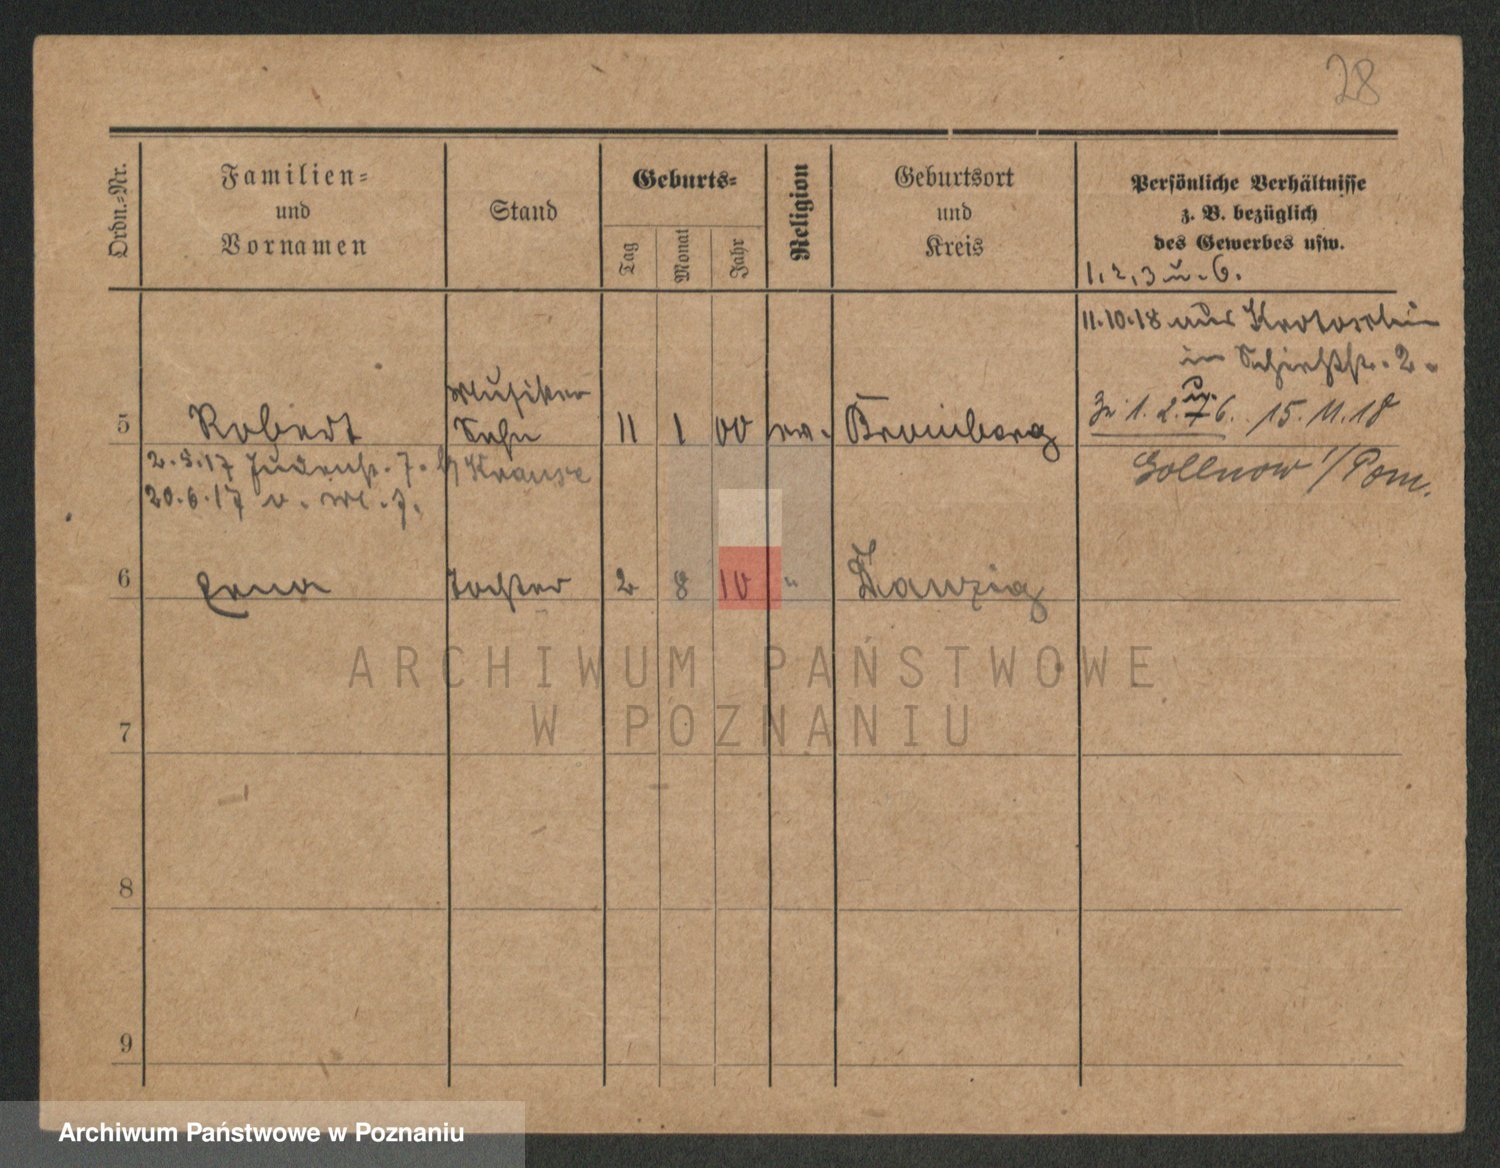 28
Ordn.-Nr.
Familien-
und
Vornamen
Stand
Geburts-
Tag
Monat
Jahr
Religion
Geburtsort
und
Kreis
Persönliche Verhältnisse
z. B. bezüglich
des Gewerbes usw.
1, 2, 3 u. 6.
11.10.18 aus Krotoschin
in Schießstr. 2.
5 Robert Musiker Sohn 11 1 00 ev. Bromberg
Zu 1. 2. u. 6. 15.11.18
Gollnow i/Pom.
2.3.17 Judenstr. 7. b/ Krause
20.6.17 v.
6 Erna Tochter 2 8 10 " Danzig
7
8
9
ARCHIWUM PAŃSTWOWE
W POZNANIU
Archiwum Państwowe w Poznaniu